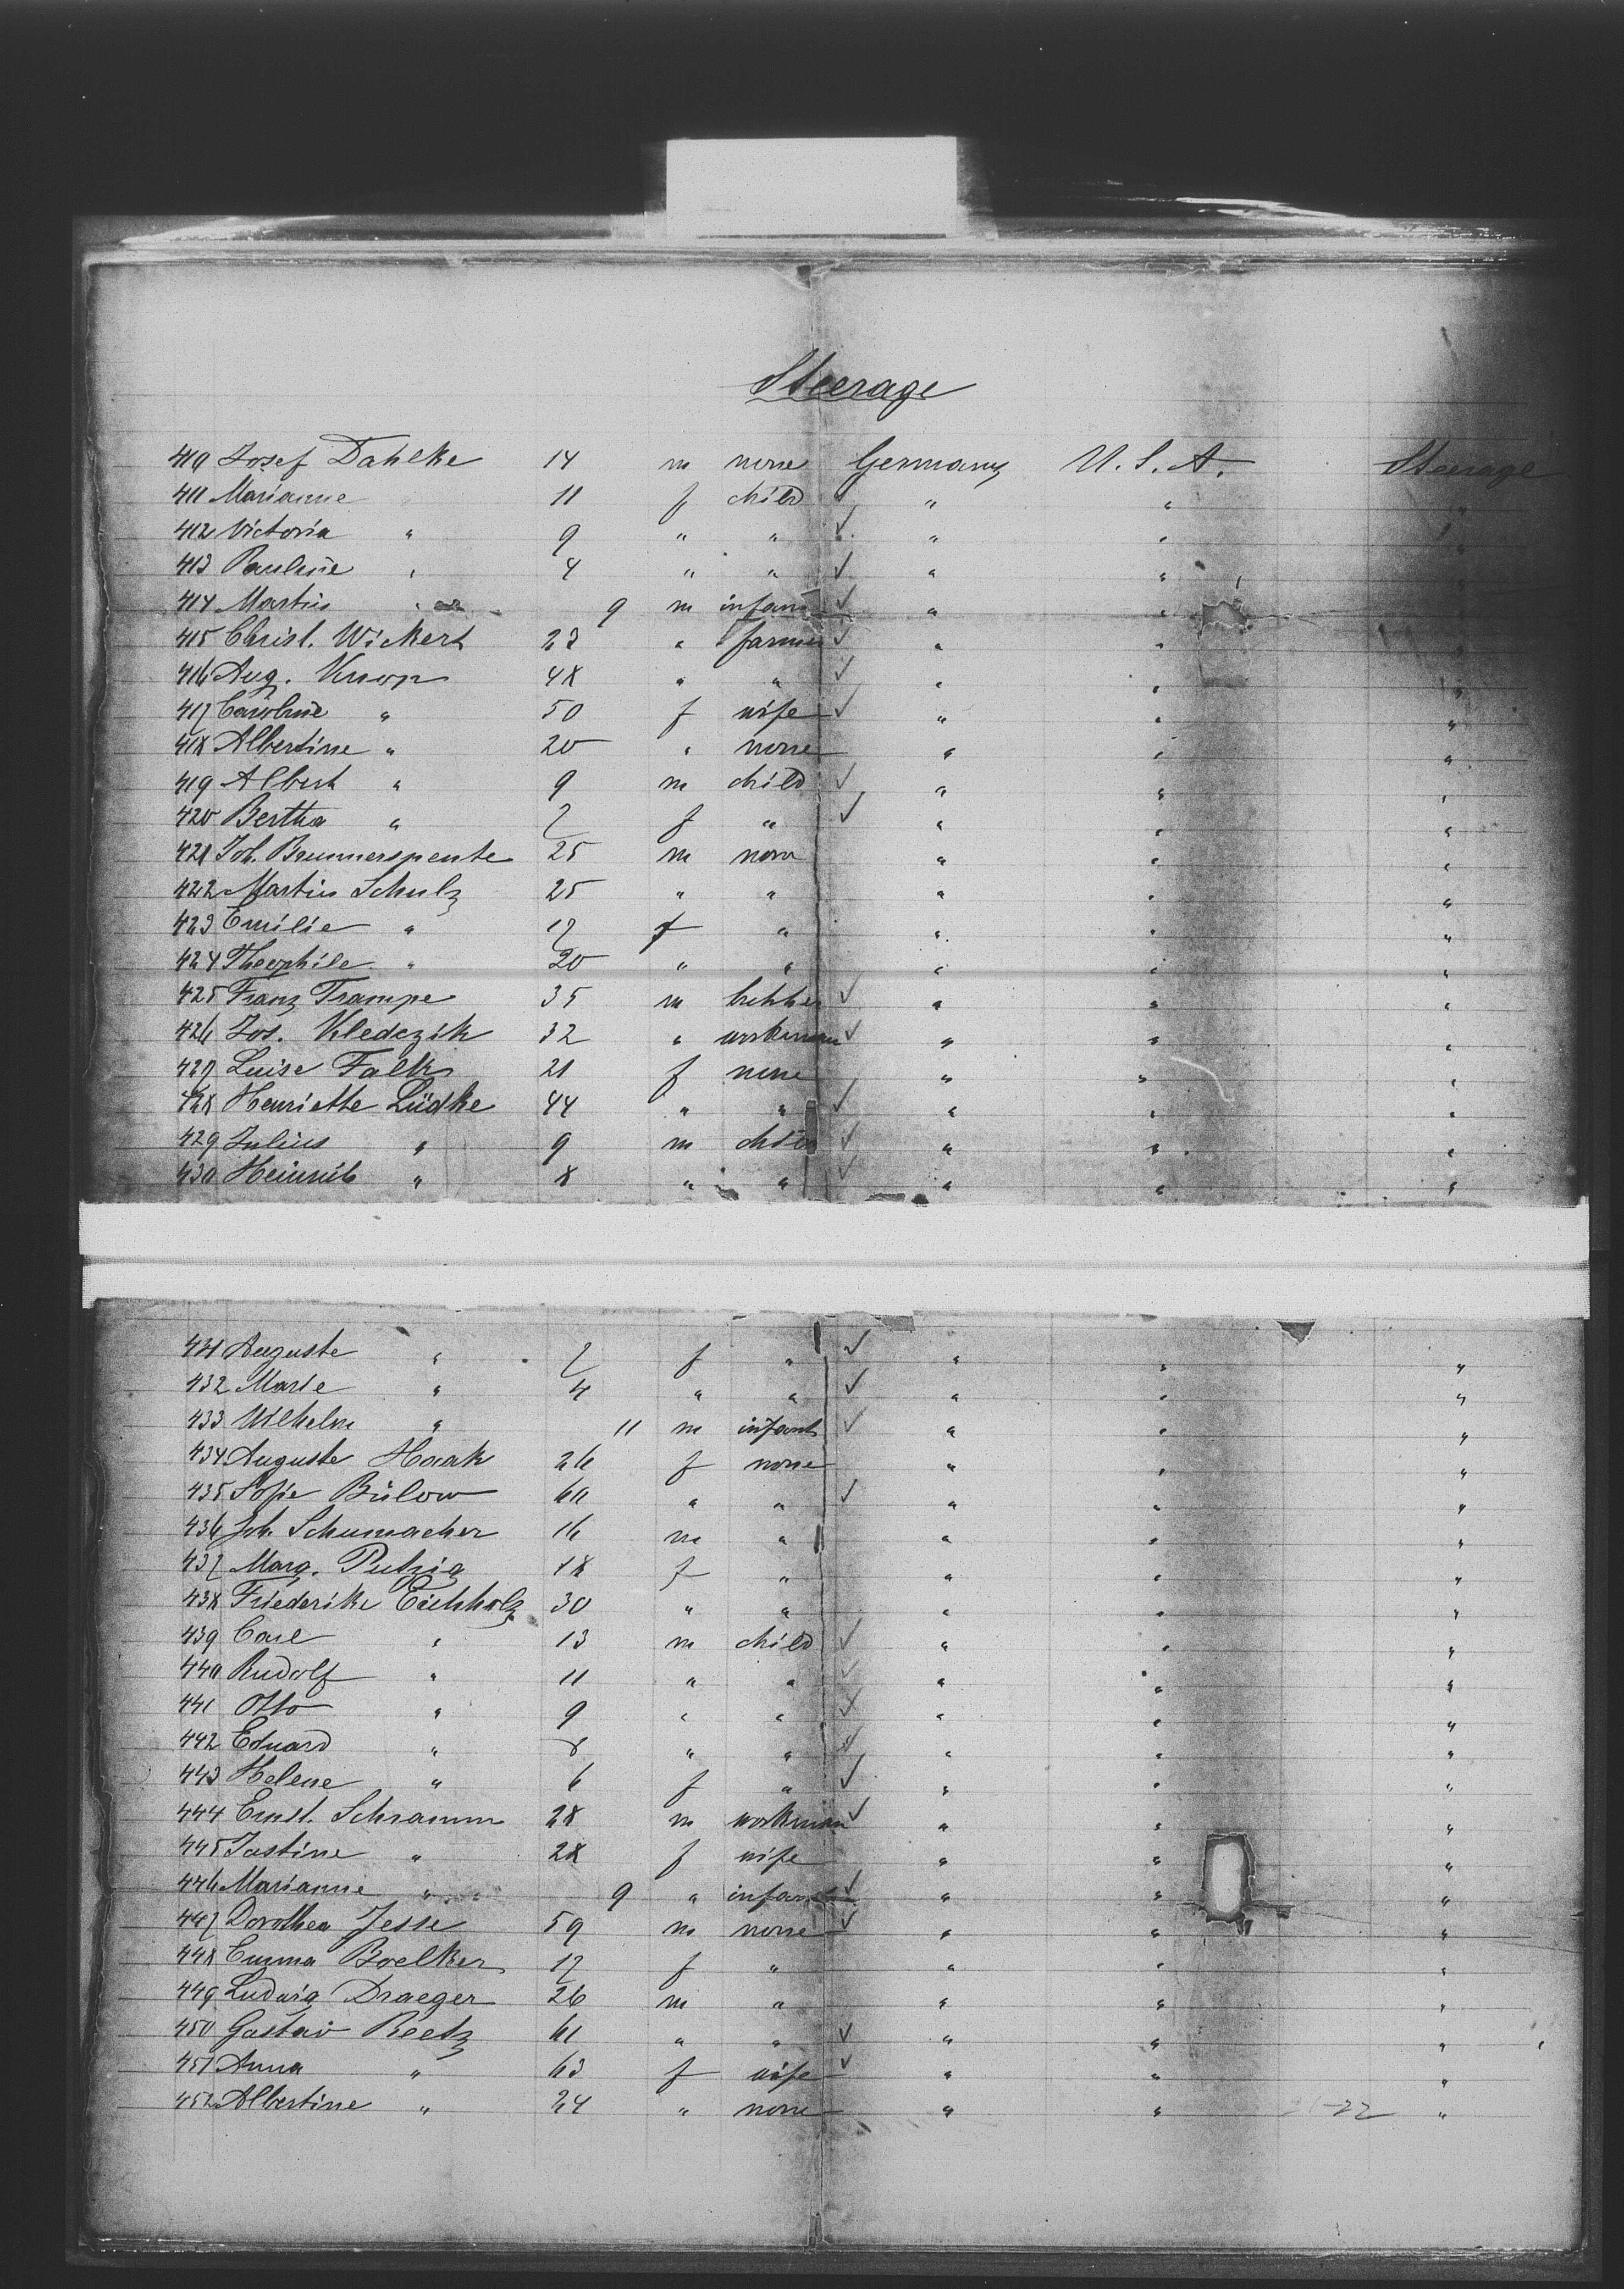 Steerage
410 Josef Dahlke 14 m none Germany U.S.A. Steerage
411 Marianne " 11 f child " " "
412 Victoria " 9 " " ✓ " " "
413 Pauline " 4 " " ✓ " " "
414 Martin " 9 m infant ✓ " " "
415 Christ. Wickert 23 " farmer ✓ " " "
416 Aug. Knop 48 " " ✓ " " "
417 Caroline " 50 f wife ✓ " " "
418 Albertine " 20 " none " " "
419 Albert " 9 m child ✓ " " "
420 Bertha " 7 f " ✓ " " "
421 Joh. 25 m none " " "
422 Martin Schulz 25 " " " " "
423 Emilie " 17 f " " " "
424 Theophile " 20 " " " " "
425 Franz Trampe 35 m ✓ " " "
426 Jos. Kledczik 32 " workman ✓ " " "
427 Luise Falk 21 f none " " "
428 Henriette Lüdke 44 " " ✓ " " "
429 Julius " 9 m child ✓ " " "
430 Heinrich " 8 " " ✓ " " "
431 Auguste " 7 f " ✓ " " "
432 Marie " 4 " " ✓ " " "
433 Wilhelm " 11 m infant ✓ " " "
434 Auguste Haak 26 f none " " "
435 Sofie Bülow 60 " " ✓ " " "
436 Joh. Schumacher 16 m " " " "
437 Marg. Putzig 18 f " " " "
438 Friederike Eichholz 30 " " " " "
439 Carl " 13 m child ✓ " " "
440 Rudolf " 11 " " ✓ " " "
441 Otto " 9 " " ✓ " " "
442 Eduard " 8 " " ✓ " " "
443 Helene " 6 f " ✓ " " "
444 Ernst. Schramm 28 m workman ✓ " " "
445 Justine " 28 f wife " " "
446 Marianne " 9 " infant ✓ " " "
447 Dorothea Jesse 59 m none ✓ " " "
448 Emma Boelker 17 f " " " "
449 Ludwig Draeger 26 m " " " "
450 Gustav Reetz 61 " " ✓ " " "
451 Anna " 63 f wife ✓ " " "
452 Albertine " 24 " none " " "